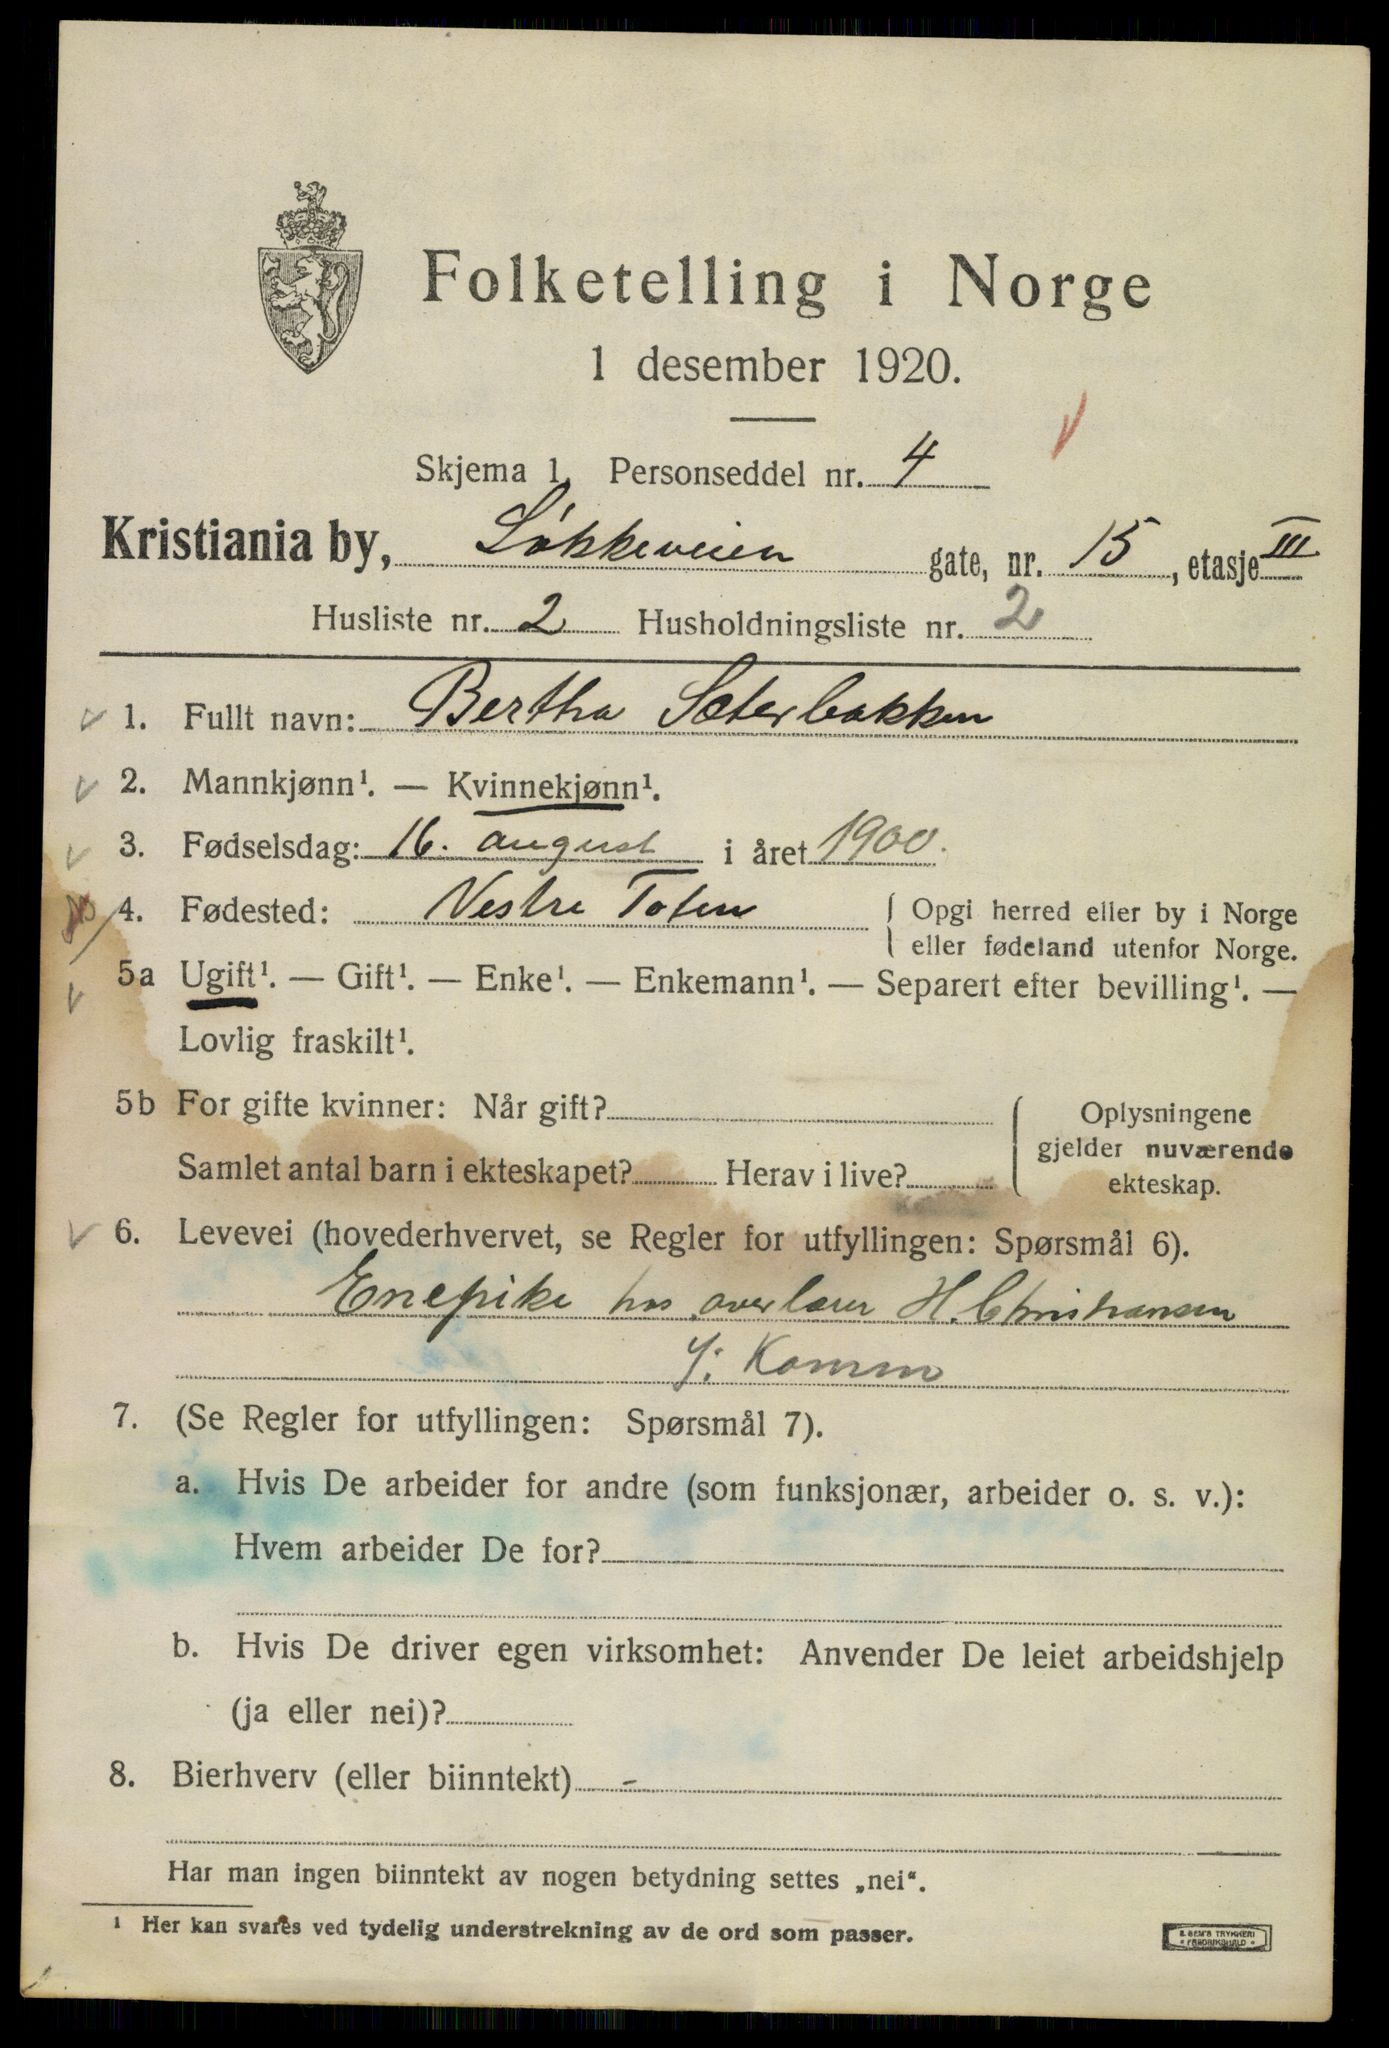 Folketelling i Norge
1 desember 1920.
Skjema 1. Personseddel nr. 4
Kristiania by, Løkkeveien gate, nr. 15, etasje III
Husliste nr. 2 Husholdningsliste nr. 2
1. Fullt navn: Bertha Sæterbakken
2. Mannkjønn¹. — Kvinnekjønn¹.
3. Fødselsdag: 16. august i året 1900.
4. Fødested: Vestre Toten { Opgi herred eller by i Norge
eller fødeland utenfor Norge.
5a Ugift¹. — Gift¹. — Enke¹. — Enkemann¹. — Separert efter bevilling¹. —
Lovlig fraskilt¹.
5b For gifte kvinner: Når gift?
Samlet antal barn i ekteskapet? Herav i live?
{ Oplysningene
gjelder nuværende
ekteskap.
6. Levevei (hovederhvervet, se Regler for utfyllingen: Spørsmål 6).
Enepike hos overlærer H. Christiansen
7. (Se Regler for utfyllingen: Spørsmål 7).
a. Hvis De arbeider for andre (som funksjonær, arbeider o. s. v.):
Hvem arbeider De for?
b. Hvis De driver egen virksomhet: Anvender De leiet arbeidshjelp
(ja eller nei)?
8. Bierhverv (eller biinntekt) -
Har man ingen biinntekt av nogen betydning settes „nei“.
¹ Her kan svares ved tydelig understrekning av de ord som passer.
E. SEM'S TRYKKERI
FREDRIKSHALD